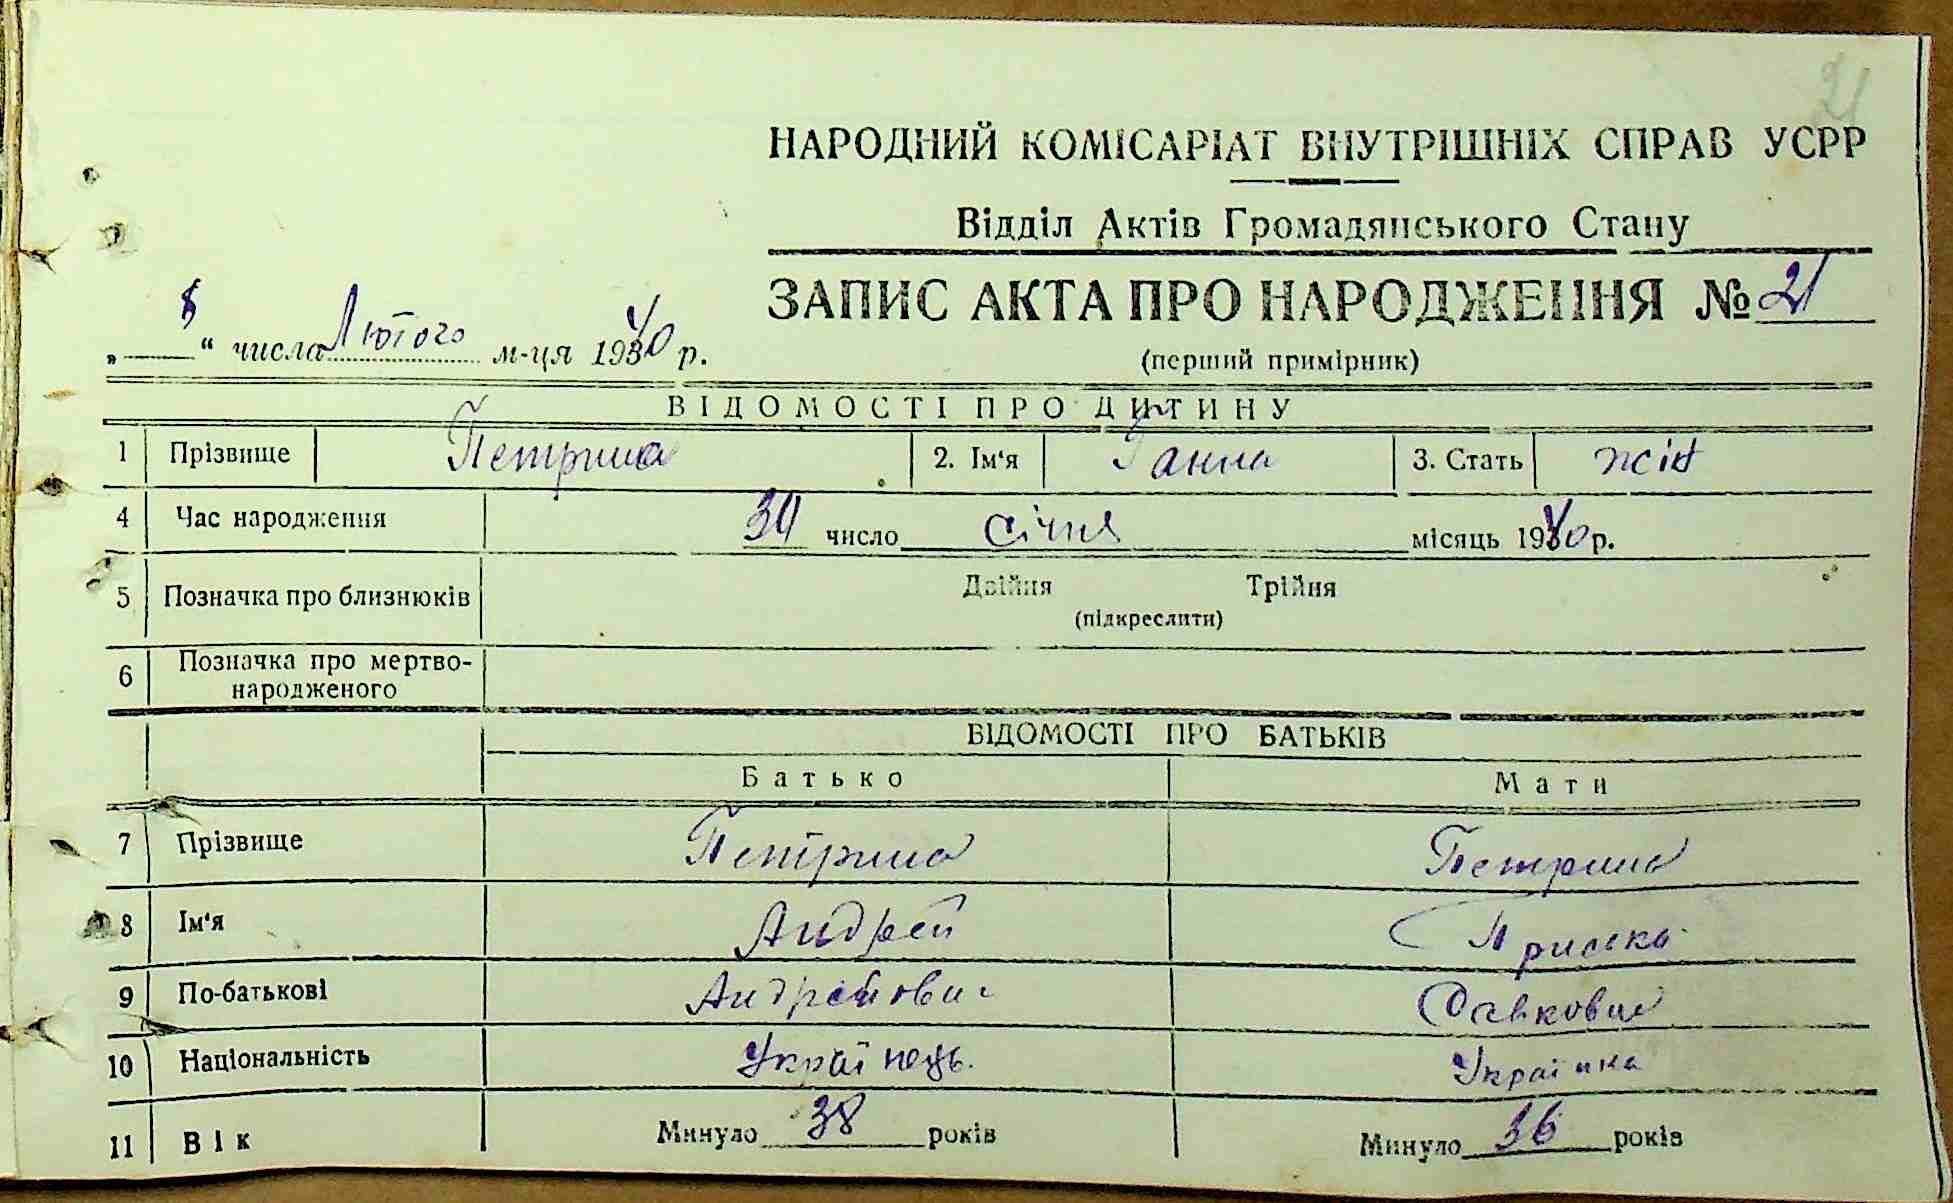 21
НАРОДНИЙ КОМІСАРІАТ ВНУТРІШНІХ СПРАВ УСРР
Відділ Актів Громадянського Стану
ЗАПИС АКТА ПРО НАРОДЖЕННЯ № 21
„ 8 “ числа Лютого м-ця 1940 р.
(перший примірник)
ВІДОМОСТІ ПРО ДИТИНУ
1 Прізвище Петрина 2. Ім‘я Ганна 3. Стать жін
4 Час народження число січня місяць 1940 р.
5 Позначка про близнюків Двійня Трійня
(підкреслити)
6 Позначка про мертво-
народженого
ВІДОМОСТІ ПРО БАТЬКІВ
Батько Мати
7 Прізвище Петрина Петрина
8 Ім‘я Андрей
9 По-батькові Андрейович
10 Національність Українець. Українка
11 Вік Минуло 38 років Минуло 36 років